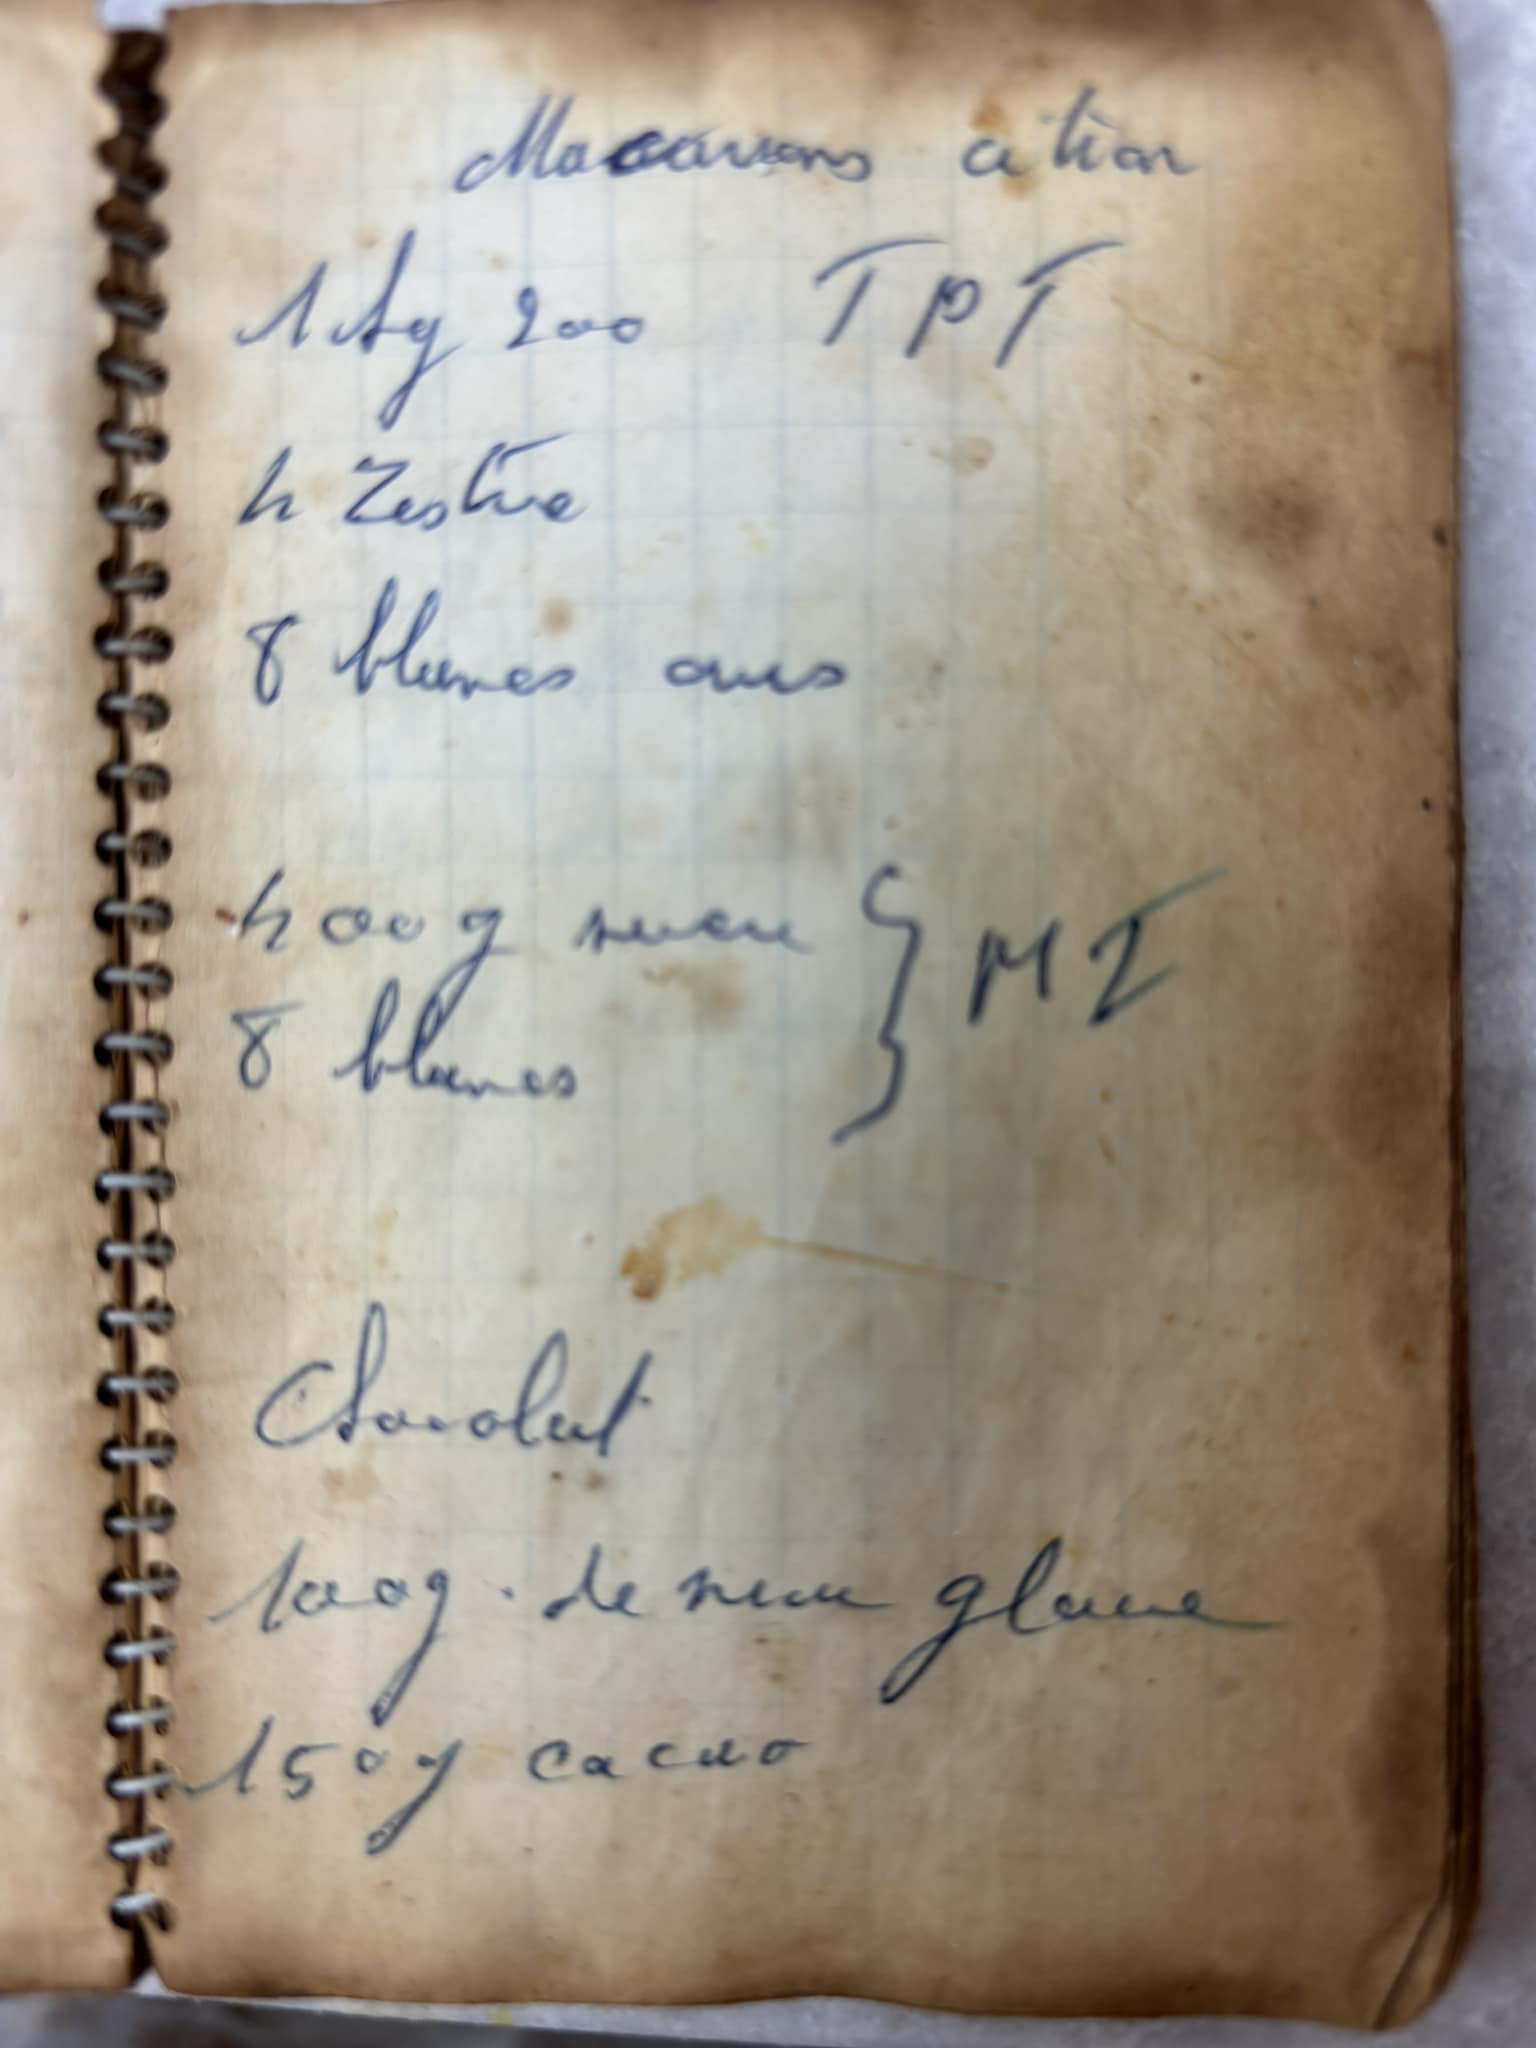 Macarons citron
1 kg 200 TPT
4 Zestre
8 blancs crus
400 g sucre } MI
8 blancs
Chocolat
100g. de sucre glace
150g cacao